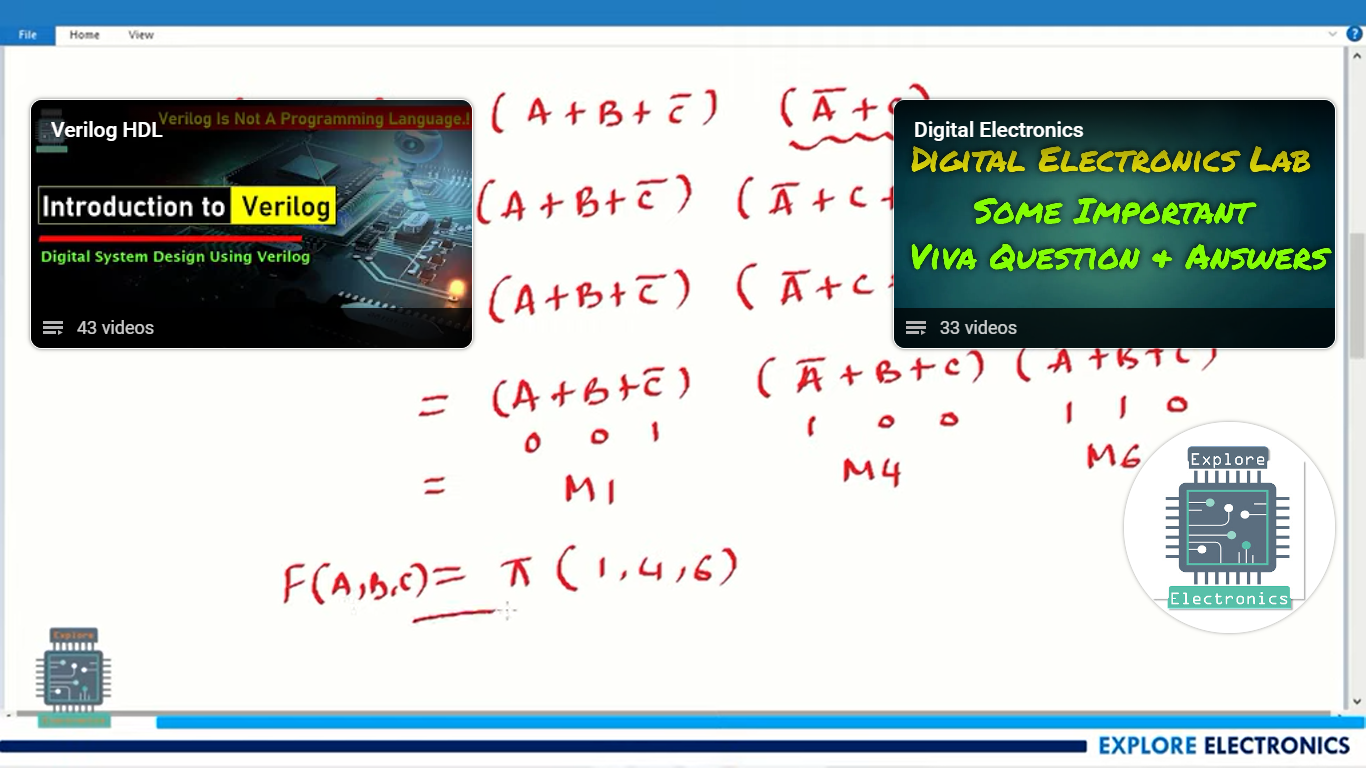 File Home View
(A+B+C̅) (A̅+C
Verilog Is Not A Programming Language.!
Verilog HDL
Introduction to Verilog
Digital System Design Using Verilog
43 videos
Digital Electronics
Digital Electronics Lab
Some Important
Viva Question & Answers
33 videos
(A+B+C̅) (A̅+C+
(A+B+C̅) (A̅+C
= (A+B+C̅) (A̅+B+C) (A+B+C)
0 0 1 1 0 0 1 1 0
= M1 M4 M6
F(A,B,C)= π(1,4,6)
Explore
Electronics
Explore
Electronics
EXPLORE ELECTRONICS